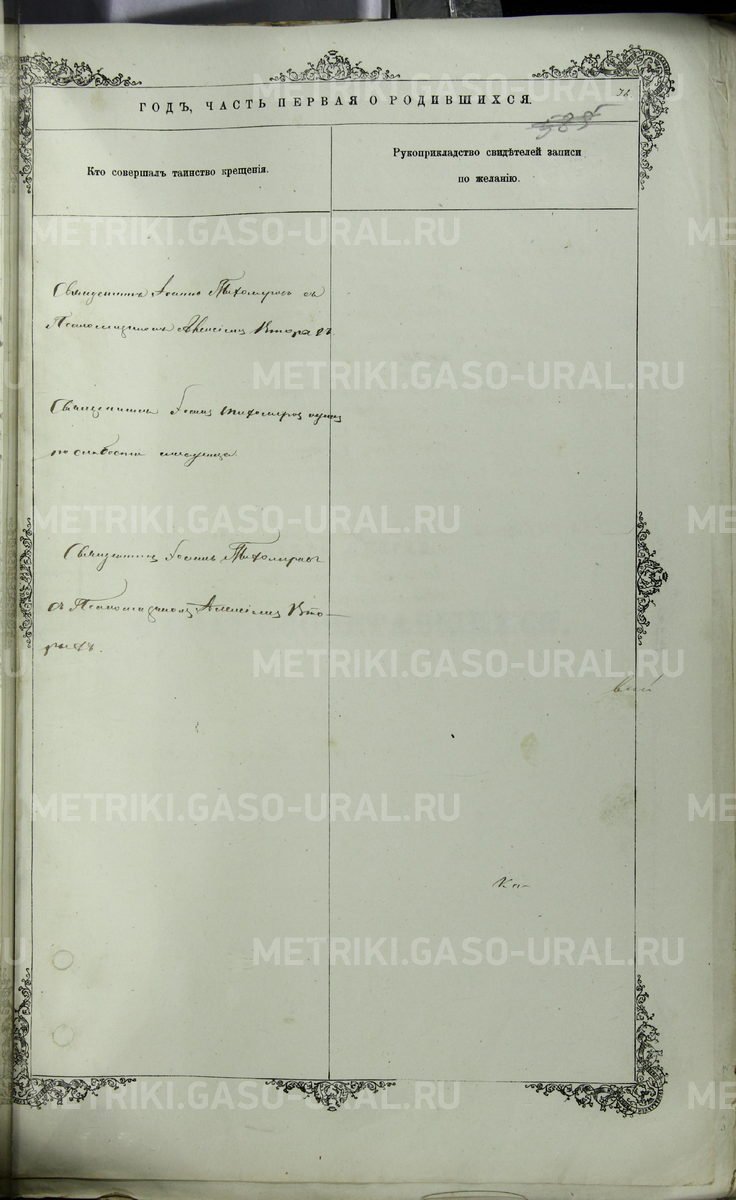 ГОДЪ, ЧАСТЬ ПЕРВАЯ О РОДИВШИХСЯ.
585
Кто совершалъ таинство крещенія.
Рукоприкладство свидѣтелей записи
по желанію.
Священникъ Іоаннъ Тихомировъ съ
Псаломщикомъ Алексіемъ Вторыхъ
Священникъ Іоаннъ Тихомировъ одинъ
по слабости младенца
Священникъ Іоаннъ Тихомировъ
съ Псаломщикомъ Алексіемъ Вто-
рыхъ.
METRIKI.GASO-URAL.RU